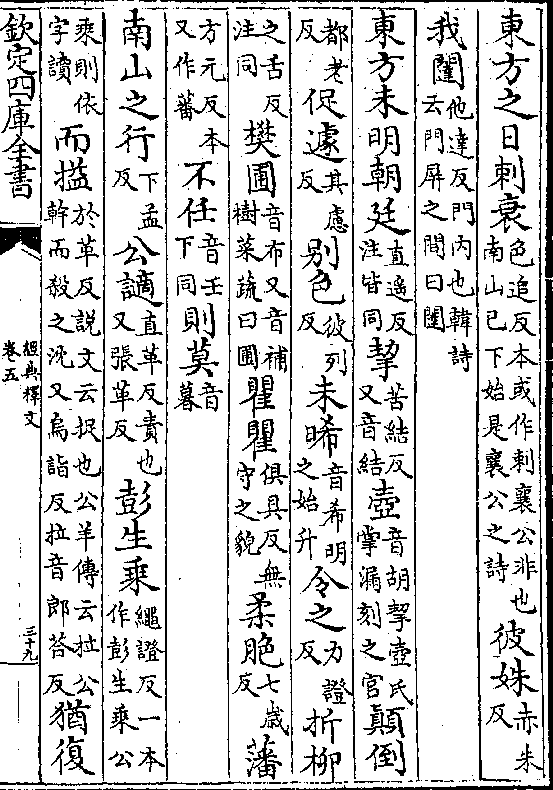 東方之日刺衰色追反本或作刺襄公非也南山已下始是襄公之詩彼姝赤朱反
我闥他達反門內也韓詩云門屏之間曰闥
東方未明朝廷直遥反注皆同挈苦結反又音結壺音胡挈壺氏掌漏刻之官顛倒
都老反促遽其慮反别色彼列反未晞音希明之始升令之力證反折柳
之舌反注同樊圃音布又音補樹菜蔬曰圃瞿瞿俱具反無守之貌柔脃七歲反藩
方元反本又作蕃不任音壬下同則莫音暮
南山之行下孟反公謫直革反責也又張革反彭生乘繩證反一本作彭生乘公
乘則依字讀而搤於革反說文云捉也公羊傳云拉公幹而殺之沈又烏詣反拉音郎荅反猶復
欽定四庫全書
經典釋文
卷五
三十九